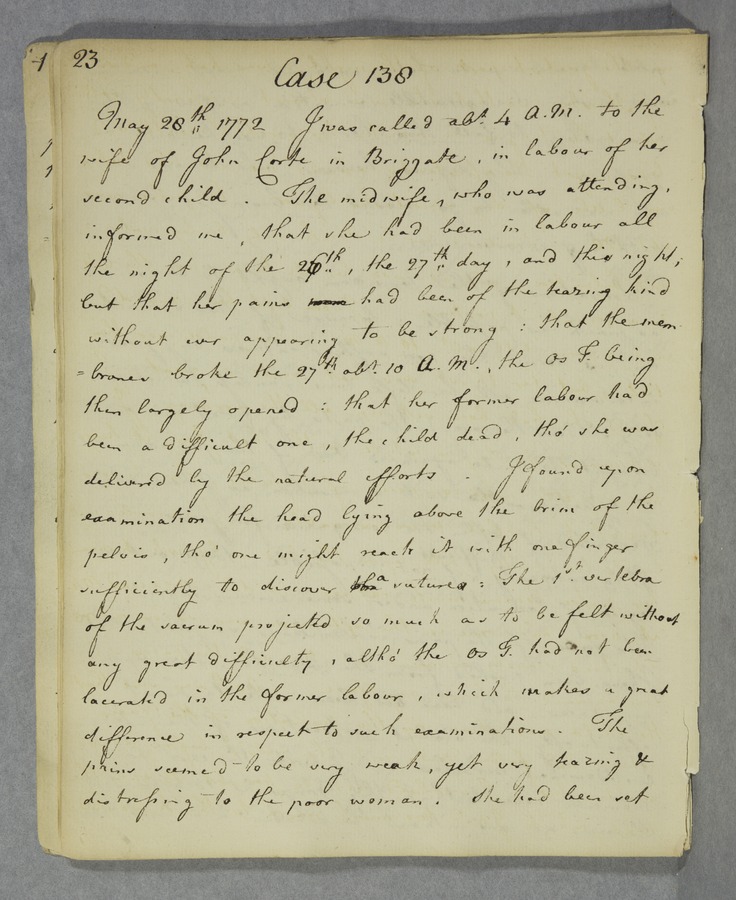 23
Case 138
May 28th 1772 I was called abt. 4 A.M. to the
wife of John Corte in Briggate, in labour of her
second child. The midwife, who was attending,
informed me, that she had been in labour all
the night of the 26th, the 27th day, and this night;
but that her pains had been of the teazing kind
without ever appearing to be strong: that the mem-
=branes broke the 27th abt. 10 A.M., the Os T. being
then largely opened: that her former labour had
been a difficult one, the child dead, tho' she was
deliver'd by the natural efforts. I found upon
examination the head lying above the brim of the
pelvis, tho' one might reach it with one finger
sufficiently to discover a suture: The 1st. vertebra
of the sacrum projected so much as to be felt without
any great difficulty, altho' the Os T. had not been
lacerated in the former labour, which makes a great
difference in respect to such examinations. The
pains seemed to be very weak, yet very teazing &
distressing to the poor woman. She had been set